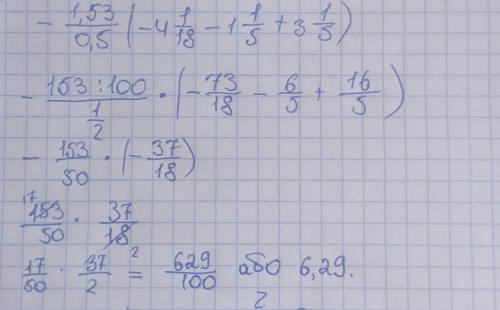 - 1,53/0,5 (-4 1/18 - 1 1/5 + 3 1/5)
- 153:100/(1/2) · (-73/18 - 6/5 + 16/5)
- 153/50 · (-37/18)
17 153/50 · 37/18 2
17/50 · 37/2 = 629/100 або 6,29.